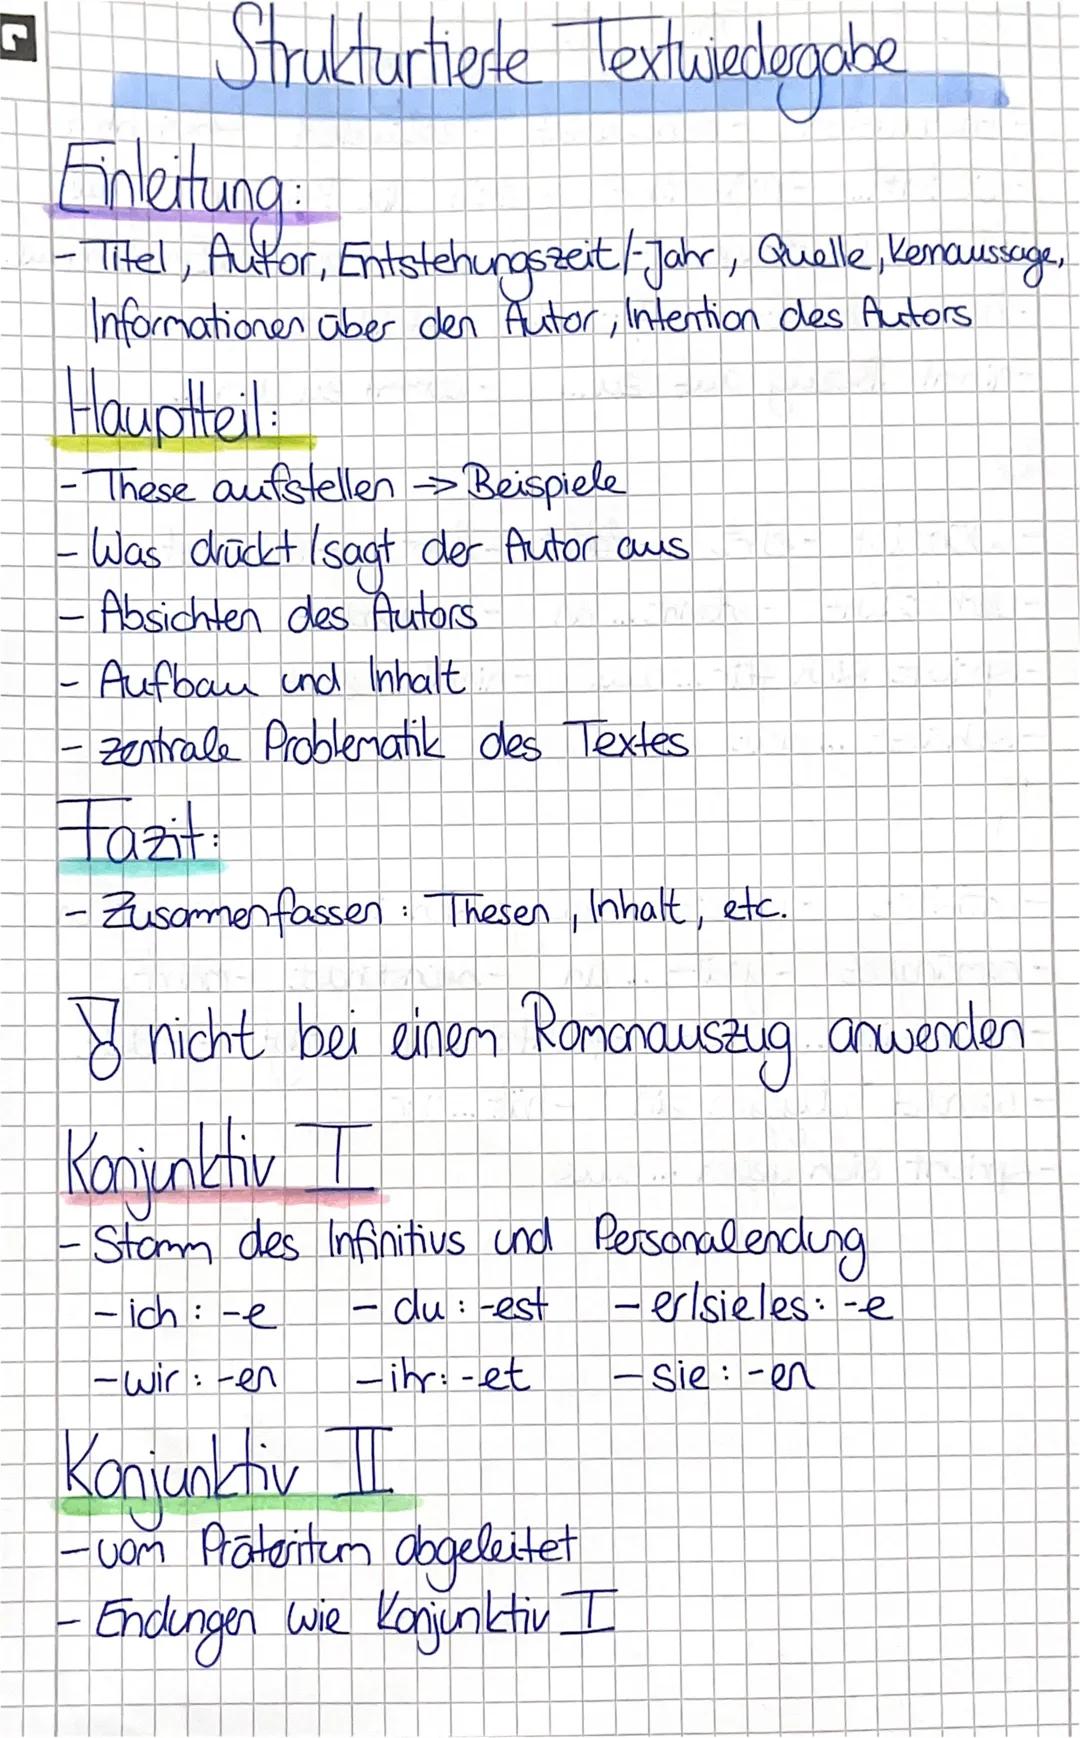 Strukturtierte Textwiedergabe
Einleitung:
- Titel, Autor, Entstehungszeit/-Jahr, Quelle, Kernaussage,
Informationen über den Autor, Intention des Autors
Hauptteil:
- These aufstellen → Beispiele
- Was drückt/sagt der Autor aus
- Absichten des Autors
- Aufbau und Inhalt
- zentrale Problematik des Textes
Fazit:
- Zusammenfassen: Thesen, Inhalt, etc.
nicht bei einem Romanauszug anwenden
Konjunktiv I
- Stamm des Infinitivs und Personalendung
- ich: -e - du: -est - er/sie/es: -e
- wir: -en - ihr: -et - sie: -en
Konjunktiv II
- vom Präteritum abgeleitet
- Endungen wie Konjunktiv I